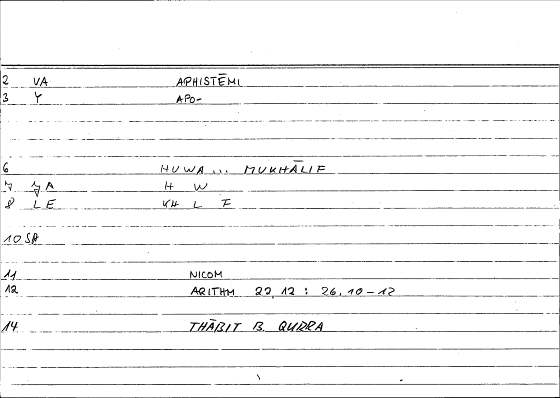 2 VA APHISTĒMI
3 Y APO-
6 HUWA ... MUKHĀLIF
7 A H W
8 LE KH L F
10 SA
11 NICOM
12 ARITHM 22,12 : 26,10-12
14 THĀBIT B. QURRA